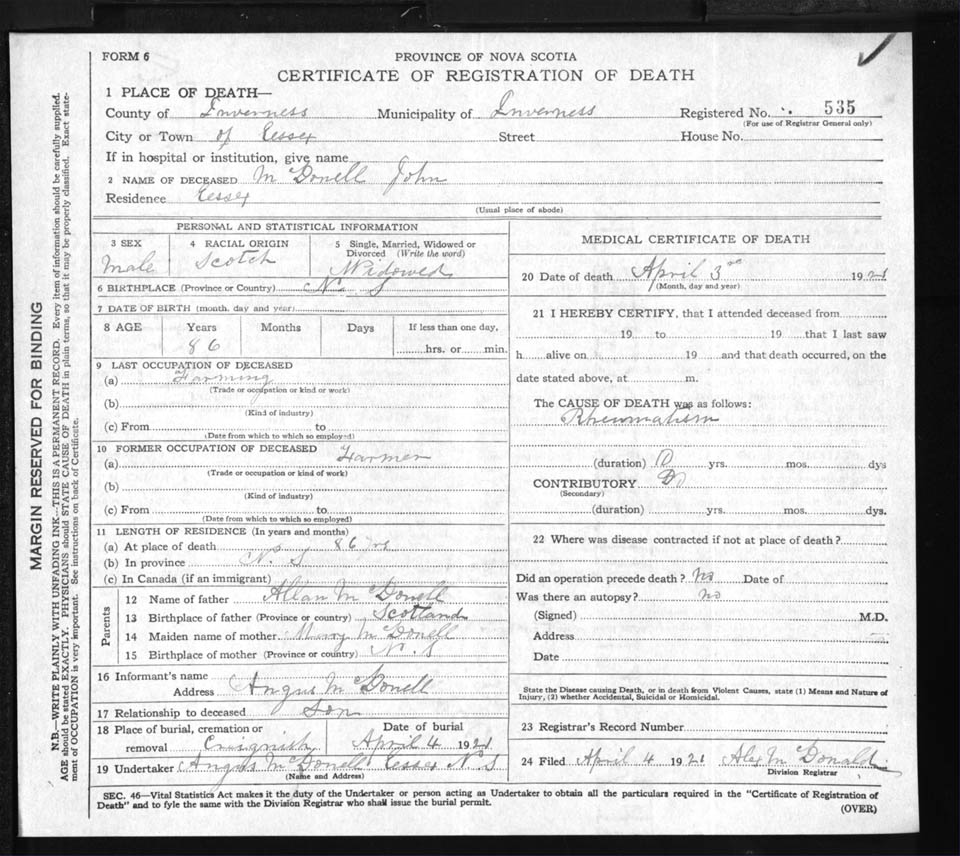 FORM 6
PROVINCE OF NOVA SCOTIA
CERTIFICATE OF REGISTRATION OF DEATH
1 PLACE OF DEATH—
County of Inverness Municipality of Inverness Registered No. 535
(For use of Registrar General only)
City or Town of Street House No.
If in hospital or institution, give name
2 NAME OF DECEASED McDonell John
Residence
(Usual place of abode)
PERSONAL AND STATISTICAL INFORMATION
3 SEX Male
4 RACIAL ORIGIN Scotch
5 Single, Married, Widowed or Divorced (Write the word) Widowed
6 BIRTHPLACE (Province or Country) N. S
7 DATE OF BIRTH (month, day and year)
8 AGE Years Months Days If less than one day,
86 hrs. or min.
9 LAST OCCUPATION OF DECEASED
(a) Farming
(Trade or occupation or kind or work)
(b)
(Kind of industry)
(c) From to
(Date from which to which so employed)
10 FORMER OCCUPATION OF DECEASED
(a) Farmer
(Trade or occupation or kind of work)
(b)
(Kind of industry)
(c) From to
(Date from which to which so employed)
11 LENGTH OF RESIDENCE (In years and months)
(a) At place of death 86 yrs
(b) In province N. S
(c) In Canada (if an immigrant)
Parents
12 Name of father Allan McDonell
13 Birthplace of father (Province or country) Scotland
14 Maiden name of mother McDonell
15 Birthplace of mother (Province or country) N. S
16 Informant's name
Address Angus McDonell
17 Relationship to deceased Son
18 Place of burial, cremation or removal Craignish
Date of burial
April 4 1921
19 Undertaker Angus McDonell N. S
(Name and Address)
MEDICAL CERTIFICATE OF DEATH
20 Date of death April 3rd 1921
(Month, day and year)
21 I HEREBY CERTIFY, that I attended deceased from
19 to 19 that I last saw
h alive on 19 and that death occurred, on the
date stated above, at m.
The CAUSE OF DEATH was as follows:
Rheumatism
(duration) 10 yrs. mos. dys
CONTRIBUTORY
(Secondary)
(duration) yrs. mos. dys.
22 Where was disease contracted if not at place of death?
Did an operation precede death? No Date of
Was there an autopsy? no
(Signed) M.D.
Address
Date
State the Disease causing Death, or in death from Violent Causes, state (1) Means and Nature of
Injury, (2) whether Accidental, Suicidal or Homicidal.
23 Registrar's Record Number
24 Filed April 4 1921 Alex McDonald
Division Registrar
SEC. 46—Vital Statistics Act makes it the duty of the Undertaker or person acting as Undertaker to obtain all the particulars required in the "Certificate of Registration of
Death" and to fyle the same with the Division Registrar who shall issue the burial permit.
(OVER)
MARGIN RESERVED FOR BINDING
N.B.—WRITE PLAINLY WITH UNFADING INK—THIS IS A PERMANENT RECORD. Every item of information should be carefully supplied.
AGE should be stated EXACTLY. PHYSICIANS should STATE CAUSE OF DEATH in plain terms, so that it may be properly classified. Exact state-
ment of OCCUPATION is very important. See instructions on back of Certificate.